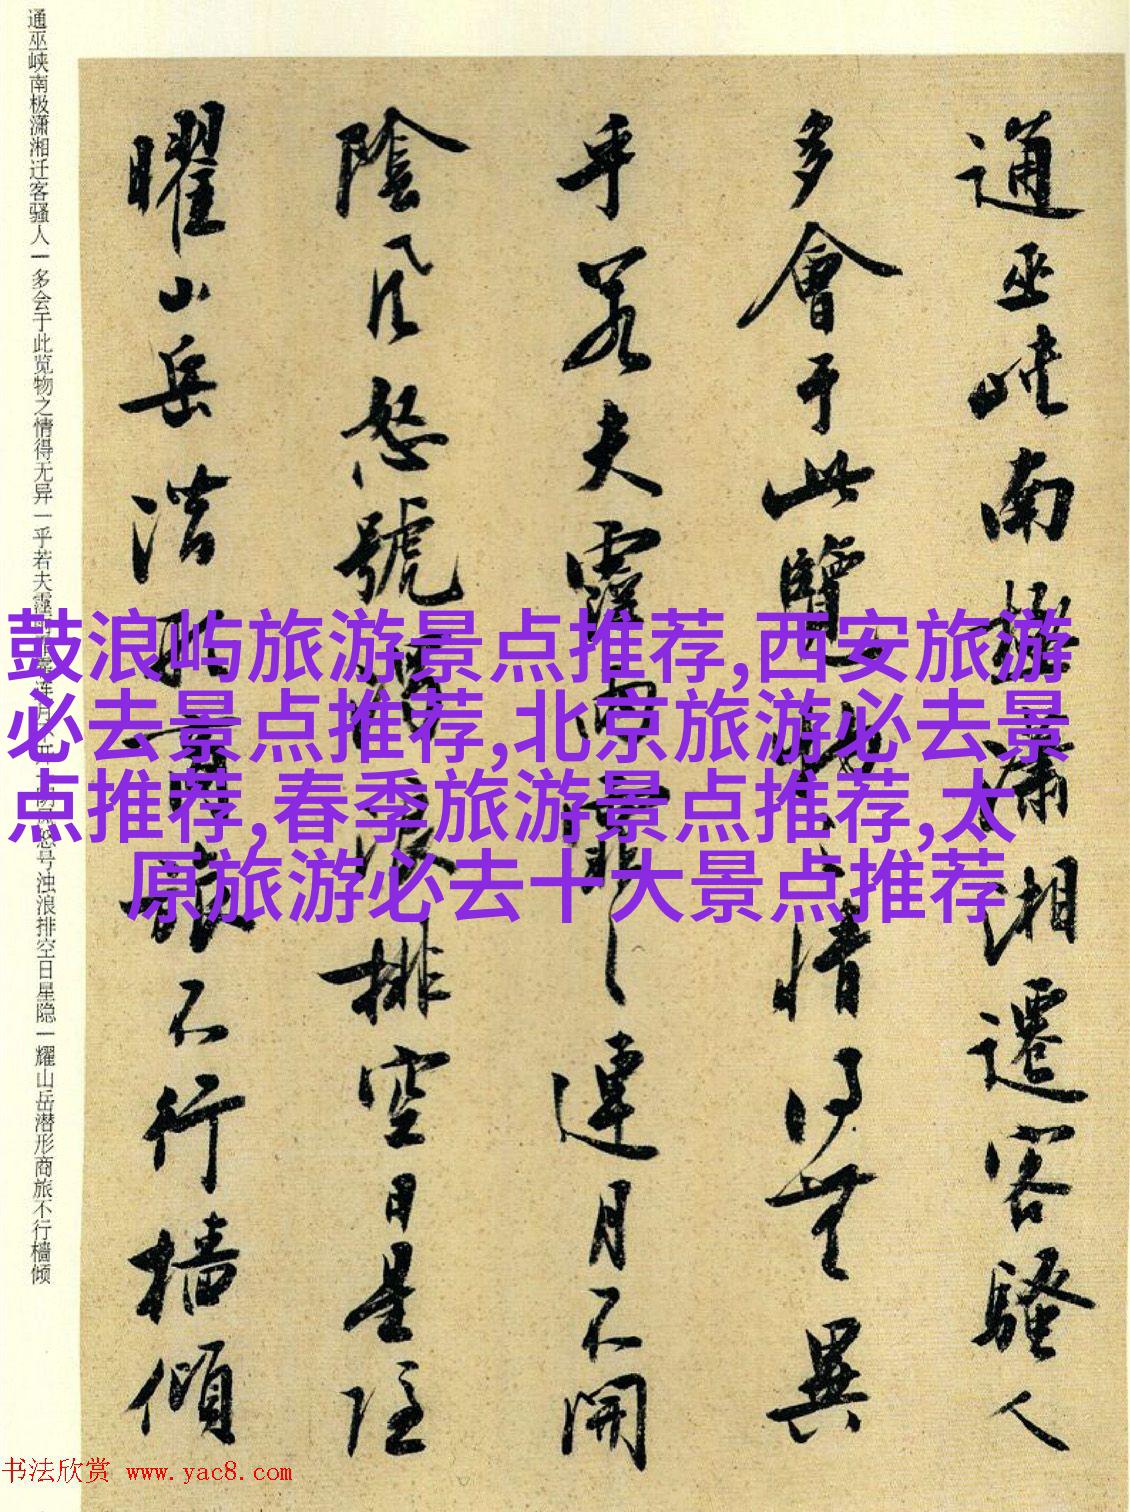 通巫峡南極瀟湘遷客騷人
多會于此覽物之情得無異
乎若夫霪雨霏霏連月不開
陰風怒號濁浪排空日星隱
曜山岳潜形商旅不行檣傾
通巫峡南极潇湘迁客骚人一多会于此览物之情得无异一乎若夫霪雨霏霏连月不开一阴风怒号浊浪排空日星隐一耀山岳潜形商旅不行檣倾
鼓浪屿旅游景点推荐,西安旅游
必去景点推荐,北京旅游必去景
点推荐,春季旅游景点推荐,太
原旅游必去十大景点推荐
书法欣赏 www.yac8.com